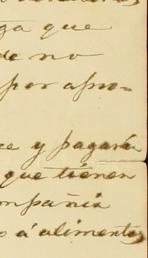 ga que
de no
por apro-
ce y pagaría
que tienen
ompañia
s á alimentos